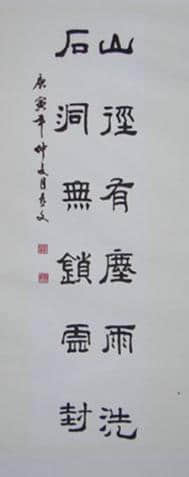 山徑有塵雨洗
石洞無鎖雲封
庚寅年仲夏月書文